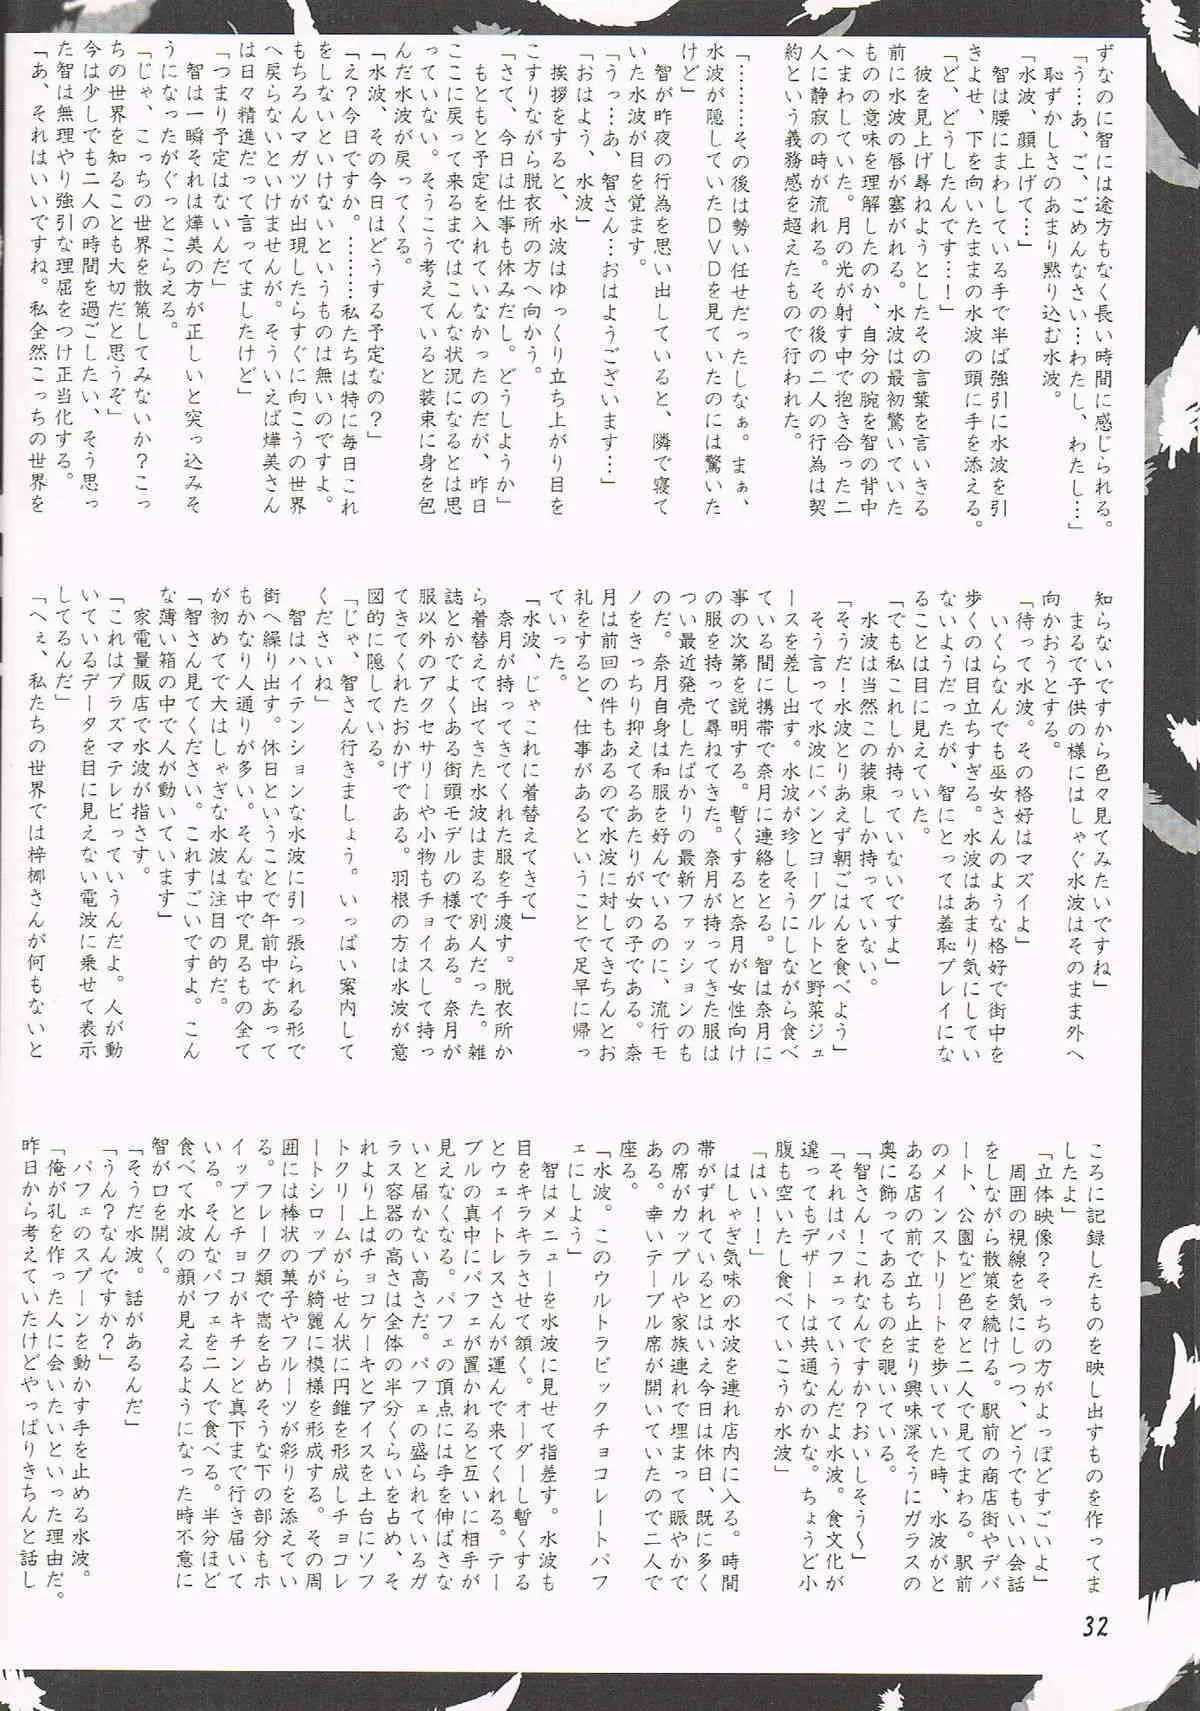 ずなのに智には途方もなく長い時間に感じられる。
「う…あ、ご、ごめんなさい…わたし、わたし…」
恥ずかしさのあまり黙り込む水波。
「水波、顔上げて…」
智は腰にまわしている手で半ば強引に水波を引
きよせ、下を向いたままの水波の頭に手を添える。
「ど、どうしたんです…！」
彼を見上げ尋ねようとしたその言葉を言いきる
前に水波の唇が塞がれる。水波は最初驚いていた
ものの意味を理解したのか、自分の腕を智の背中
へまわしていた。月の光が射す中で抱き合った二
人に静寂の時が流れる。その後の二人の行為は契
約という義務感を超えたもので行われた。
「………その後は勢い任せだったしなぁ。まぁ、
水波が隠していたDVDを見ていたのには驚いた
けど」
智が昨夜の行為を思い出していると、隣で寝て
いた水波が目を覚ます。
「うっ…あ、智さん…おはようございます…」
「おはよう、水波」
挨拶をすると、水波はゆっくり立ち上がり目を
こすりながら脱衣所の方へ向かう。
「さて、今日は仕事も休みだし。どうしようか」
もともと予定を入れていなかったのだが、昨日
ここに戻って来るまではこんな状況になるとは思
っていない。そうこう考えていると装束に身を包
んだ水波が戻ってくる。
「水波、その今日はどうする予定なの？」
「え？今日ですか。………私たちは特に毎日これ
をしないといけないというものは無いのですよ。
もちろんマガツが出現したらすぐに向こうの世界
へ戻らないといけませんが。そういえば燁美さん
は日々精進だって言ってましたけど」
「つまり予定はないんだ」
智は一瞬それは燁美の方が正しいと突っ込みそ
うになったがぐっとこらえる。
「じゃ、こっちの世界を散策してみないか？こっ
ちの世界を知ることも大切だと思うぞ」
今は少しでも二人の時間を過ごしたい、そう思っ
た智は無理やり強引な理屈をつけ正当化する。
「あ、それはいいですね。私全然こっちの世界を
知らないですから色々見てみたいですね」
まるで子供の様にはしゃぐ水波はそのまま外へ
向かおうとする。
「待って水波。その格好はマズイよ」
いくらなんでも巫女さんのような格好で街中を
歩くのは目立ちすぎる。水波はあまり気にしてい
ないようだったが、智にとっては羞恥プレイにな
ることは目に見えていた。
「でも私これしか持っていないですよ」
水波は当然この装束しか持っていない。
「そうだ！水波とりあえず朝ごはんを食べよう」
そう言って水波にパンとヨーグルトと野菜ジュ
ースを差し出す。水波が珍しそうにしながら食べ
ている間に携帯で奈月に連絡をとる。智は奈月に
事の次第を説明する。暫くすると奈月が女性向け
の服を持って尋ねてきた。奈月が持ってきた服は
つい最近発売したばかりの最新ファッションのも
のだ。奈月自身は和服を好んでいるのに、流行モ
ノをきっちり抑えてるあたりが女の子である。奈
月は前回の件もあるので水波に対してきちんとお
礼をすると、仕事があるということで足早に帰っ
ていった。
「水波、じゃこれに着替えてきて」
奈月が持ってきてくれた服を手渡す。脱衣所か
ら着替えて出てきた水波はまるで別人だった。雑
誌とかでよくある街頭モデルの様である。奈月が
服以外のアクセサリーや小物もチョイスして持っ
てきてくれたおかげである。羽根の方は水波が意
図的に隠している。
「じゃ、智さん行きましょう。いっぱい案内して
くださいね」
智はハイテンションな水波に引っ張られる形で
街へ繰り出す。休日ということで午前中であって
もかなり人通りが多い。そんな中で見るもの全て
が初めてで大はしゃぎな水波は注目の的だ。
「智さん見てください。これすごいですよ。こん
な薄い箱の中で人が動いています」
家電量販店で水波が指さす。
「これはプラズマテレビっていうんだよ。人が動
いているデータを目に見えない電波に乗せて表示
してるんだ」
「へぇ、私たちの世界では梓梛さんが何もないと
ころに記録したものを映し出すものを作ってま
したよ」
「立体映像？そっちの方がよっぽどすごいよ」
周囲の視線を気にしつつ、どうでもいい会話
をしながら散策を続ける。駅前の商店街やデパ
ート、公園など色々と二人で見てまわる。駅前
のメインストリートを歩いていた時、水波がと
ある店の前で立ち止まり興味深そうにガラスの
奥に飾ってあるものを覗いている。
「智さん！これなんですか？おいしそう〜」
「それはパフェっていうんだよ水波。食文化が
違ってもデザートは共通なのかな。ちょうど小
腹も空いたし食べていこうか水波」
「はい！！」
はしゃぎ気味の水波を連れ店内に入る。時間
帯がずれているとはいえ今日は休日、既に多く
の席がカップルや家族連れで埋まって賑やかで
ある。幸いテーブル席が開いていたので二人で
座る。
「水波。このウルトラビックチョコレートパフ
ェにしよう」
智はメニューを水波に見せて指差す。水波も
目をキラキラさせて頷く。オーダーし暫くする
とウェイトレスさんが運んで来てくれる。テー
ブルの真中にパフェが置かれると互いに相手が
見えなくなる。パフェの頂点には手を伸ばさな
いと届かない高さだ。パフェの盛られているガ
ラス容器の高さは全体の半分くらいを占め、そ
れより上はチョコケーキとアイスを土台にソフ
トクリームがらせん状に円錐を形成しチョコレ
ートシロップが綺麗に模様を形成する。その周
囲には棒状の菓子やフルーツが彩りを添えてい
る。フレーク類で嵩を占めそうな下の部分もホ
イップとチョコがキチンと真下まで行き届いて
いる。そんなパフェを二人で食べる。半分ほど
食べて水波の顔が見えるようになった時不意に
智が口を開く。
「そうだ水波。話があるんだ」
「うん？なんですか？」
パフェのスプーンを動かす手を止める水波。
「俺が孔を作った人に会いたいといった理由だ。
昨日から考えていたけどやっぱりきちんと話し
32